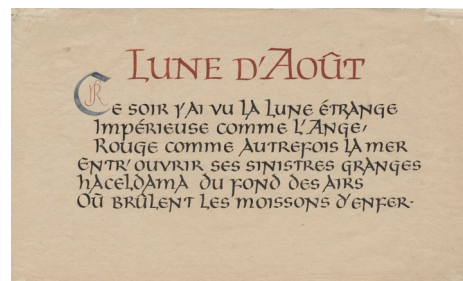 Lune d'Août
Ce soir j'ai vu la lune étrange
Impérieuse comme l'Ange,
Rouge comme autrefois la mer
Entr'ouvrir ses sinistres granges
Haceldama du fond des airs
Où brûlent les moissons d'enfer.